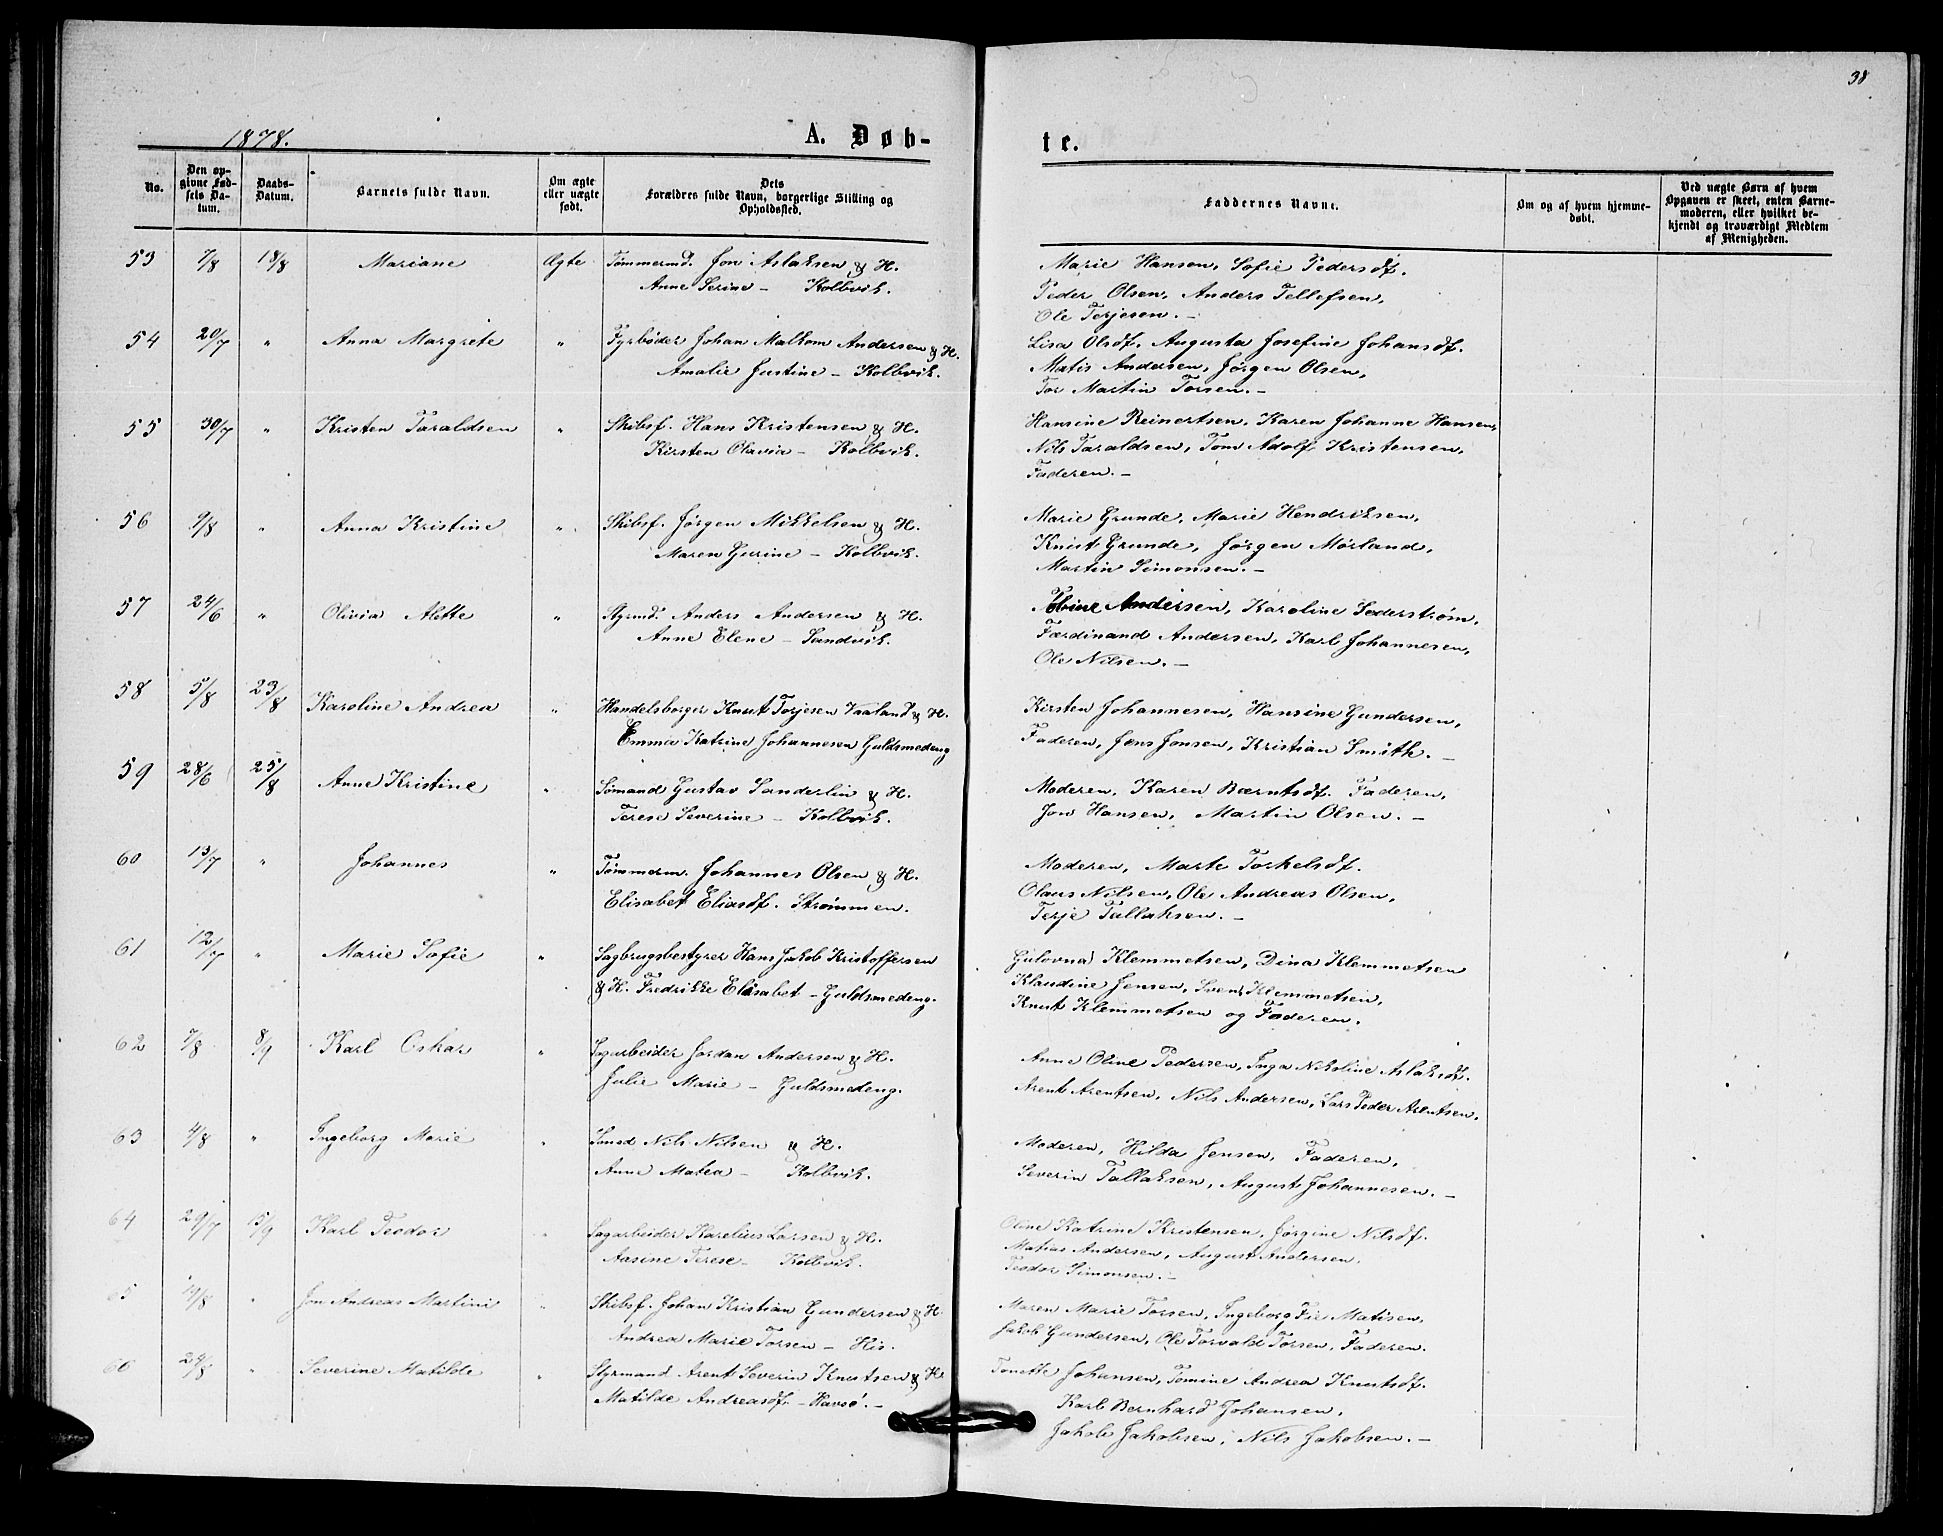 38
1878.
A. Døb-
te.
No.
Den op-
givne Fød-
sels Da-
tum.
Daabs-
Datum.
Barnets fulde Navn.
Om ægte
eller uægte
født.
Dets
Forældres fulde Navn, borgerlige Stilling og
Opholdssted.
Faddernes Navne.
Om og af hvem hjemme-
døbt.
Ved uægte Børn af hvem
Opgaven er skeet, enten Barne-
moderen, eller hvilket be-
kjendt og troværdigt Medlem
af Menigheden.
53 7/8 18/8 Mariane Ægte Tømmermd. Jon Aslaksen & H.
Anne Serine – Kolbvik.
Marie Hansen, Sofie Pedersdf.
Peder Olsen, Anders Tellefsen,
Ole Terjesen. –
54 20/7 " Anna Margrete " Fyrbøder Johan Malkom Andersen & H.
Amalie Justine – Kolbvik.
Lisa Olsdf. Augusta Josefine Johansdf.
Matis Andersen, Jørgen Olsen,
Tor Martin Torsen. –
55 30/7 " Kristen Taraldsen " Skibsf. Hans Kristensen & H.
Kirsten Olavia – Kolbvik.
Hansine Reinertsen, Karen Johanne Hansen,
Nils Taraldsen, Tom Adolf Kristensen,
Faderen. –
56 9/8 " Anna Kristine " Skibsf. Jørgen Mikkelsen & H.
Maren Gurine – Kolbvik.
Marie Grunde, Marie Hendriksen,
Knut Grunde, Jørgen Mørland,
Martin Simonsen. –
57 24/6 " Olivia Alette " Styrmd. Anders Andersen & H.
Anne Elene – Sandvik.
Andersen, Karoline Sederstrøm,
Færdinand Andersen, Karl Johannesen,
Ole Nilsen. –
58 5/8 23/8 Karoline Andrea " Handelsborger Knut Torjesen Vaaland & H.
Emma Katrine Johannesen Guldsmedeng
Kirsten Johannesen, Hansine Gundersen,
Faderen, Jens Jonsen, Kristian Smith. –
59 28/6 25/8 Anne Kristine " Sømand Gustav Sanderlin & H.
Terese Severine – Kolbvik.
Moderen, Karen Bærntsdf. Faderen,
Jon Hansen, Martin Olsen. –
60 13/7 " Johannes " Tømmerm. Johannes Olsen & H.
Elisabet Eliasdf. Strømmen.
Moderen, Marte Torkelsdf.
Olaus Nilsen, Ole Andreas Olsen,
Terje Tallaksen. –
61 12/7 " Marie Sofie " Sagbrugsbestyrer Hans Jakob Kristoffersen
& H. Fredrikke Elisabet – Guldsmedeng.
Gulovna Klemmetsen, Dina Klemmetsen
Klaudine Jensen, Svend Klemmetsen,
Knut Klemmetsen og Faderen.
62 7/8 8/9 Karl Oskar " Sagarbeider Jordan Andersen & H.
Julie Marie – Guldsmedeng.
Anne Oline Pedersen, Inga Nikoline Aslaksdf.
Arent Arentsen, Nils Andersen, Lars Peder Arentsen.
63 4/8 " Ingeborg Marie " Smed Nils Nilsen & H.
Anne Matea – Kolbvik.
Moderen, Hilda Jensen, Faderen,
Severin Tallaksen, August Johannesen. –
64 29/7 15/9 Karl Teodor " Sagarbeider Karelius Larsen & H.
Aasine Terese – Kolbvik.
Oline Katrine Kristensen, Jørgine Nilsdf.
Matias Andersen, August Andersen,
Teodor Simonsen. –
65 19/8 " Jon Andreas Martini " Skibsf. Johan Kristian Gundersen & H
Andrea Marie Torsen – His.
Maren Marie Torsen, Ingeborg Fie Matisen,
Jakob Gundersen, Ole Torvald Torsen, Faderen.
66 29/8 " Severine Matilde " Styrmand Arent Severin Knutsen & H
Matilde Andreasdf – Havsø. –
Tonette Johansen, Tomine Andrea Knutsdf.
Karl Bernhard Johansen,
Jakob Jakobsen, Nils Jakobsen. –